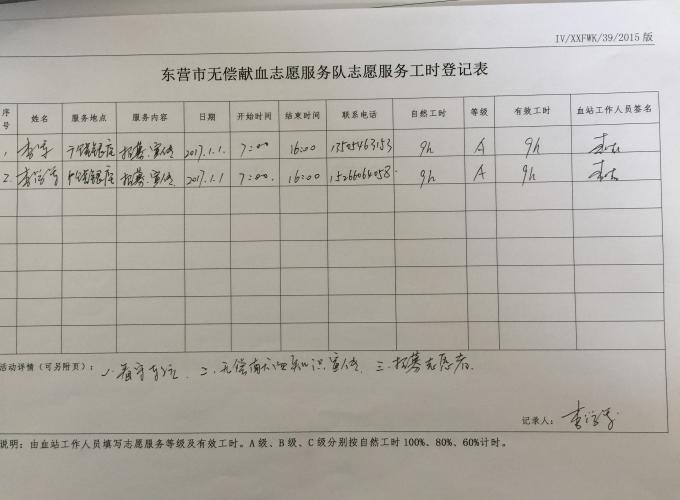 IV/XXFWK/39/2015 版
东营市无偿献血志愿服务队志愿服务工时登记表
序号 姓名 服务地点 服务内容 日期 开始时间 结束时间 联系电话 自然工时 等级 有效工时 血站工作人员签名
1. 银座 招募.宣传 2017.1.1. 7:00 16:00 13505463153 9h A 9h
2. 银座 招募.宣传 2017.1.1 7:00. 16:00 15266064058. 9h A 9h
活动详情(可另附页): 1. 二.无偿献血知识宣传. 三.招募志愿者.
记录人:
说明:由血站工作人员填写志愿服务等级及有效工时。A 级、B 级、C 级分别按自然工时 100%、80%、60%计时。